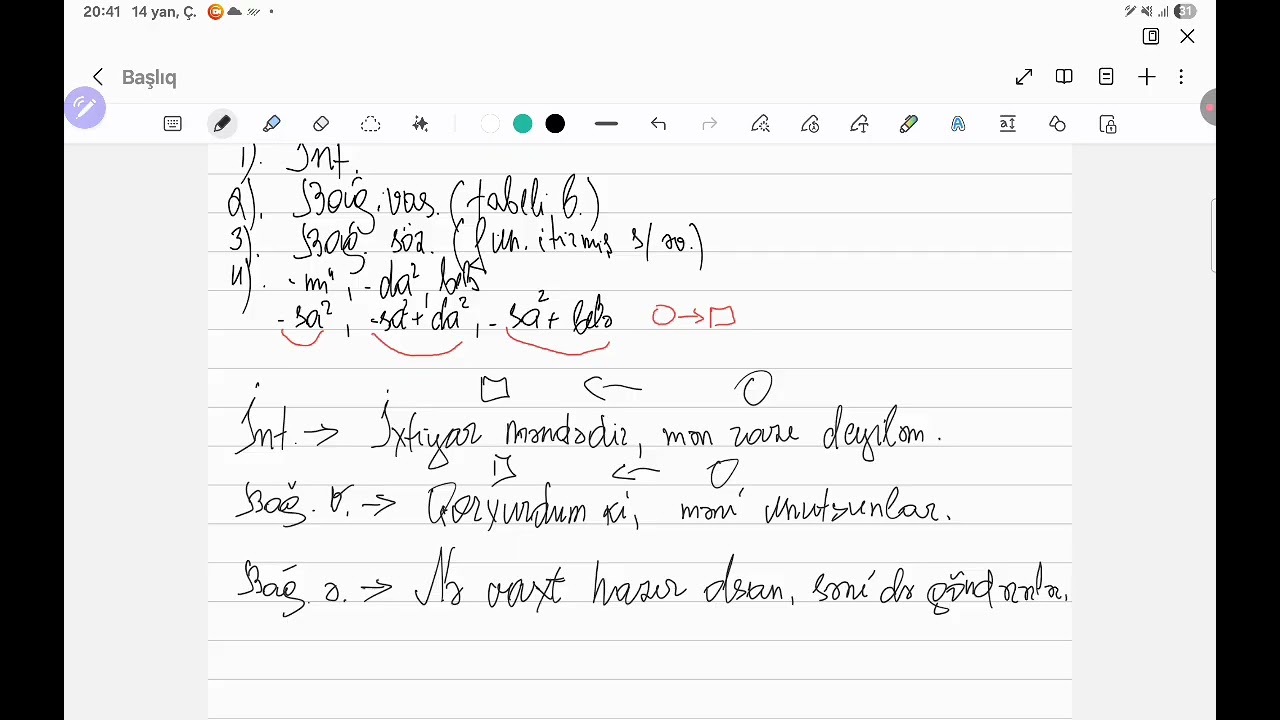 20:41 14 yan, Ç. 31
Başlıq
1). İnt.
2). Bağ. vas. (tabeli b.)
3). Bağ. söz. (fun. itirmiş s/əv.)
4). -mı⁴, -da², belə
-sa², -sa²+da², -sa²+belə
İnt. → İxtiyar məndədir, mən razı deyiləm.
Bağ. v. → Qorxurdum ki, məni unutsunlar.
Bağ. s. → Nə vaxt hazır olsan, səni də göndərərlər.